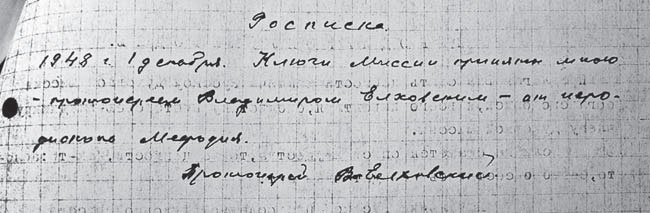 Росписка.
1948 г. 1 декабря. Ключи Миссии приняты мною
– протоиереем Владимиром Елховским – от иеро-
диакона Мефодия.
Протоиерей В Елховский